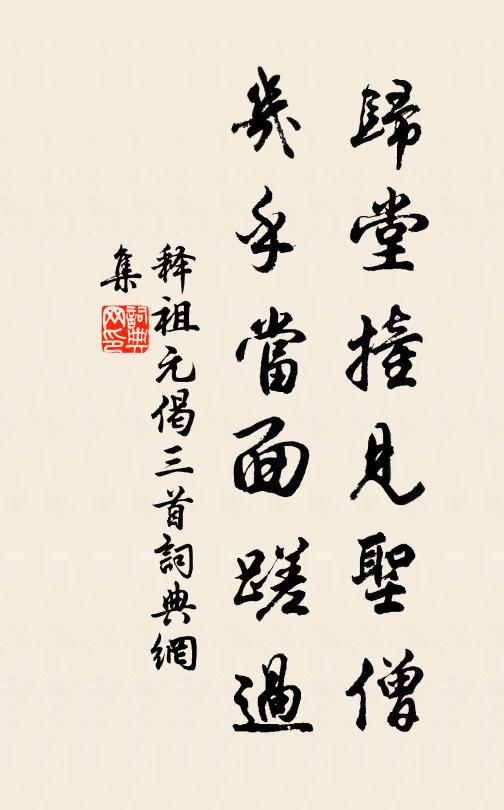 歸堂撞見聖僧
幾乎當面蹉過
释祖元偈三首詞典網
集
詞典網印